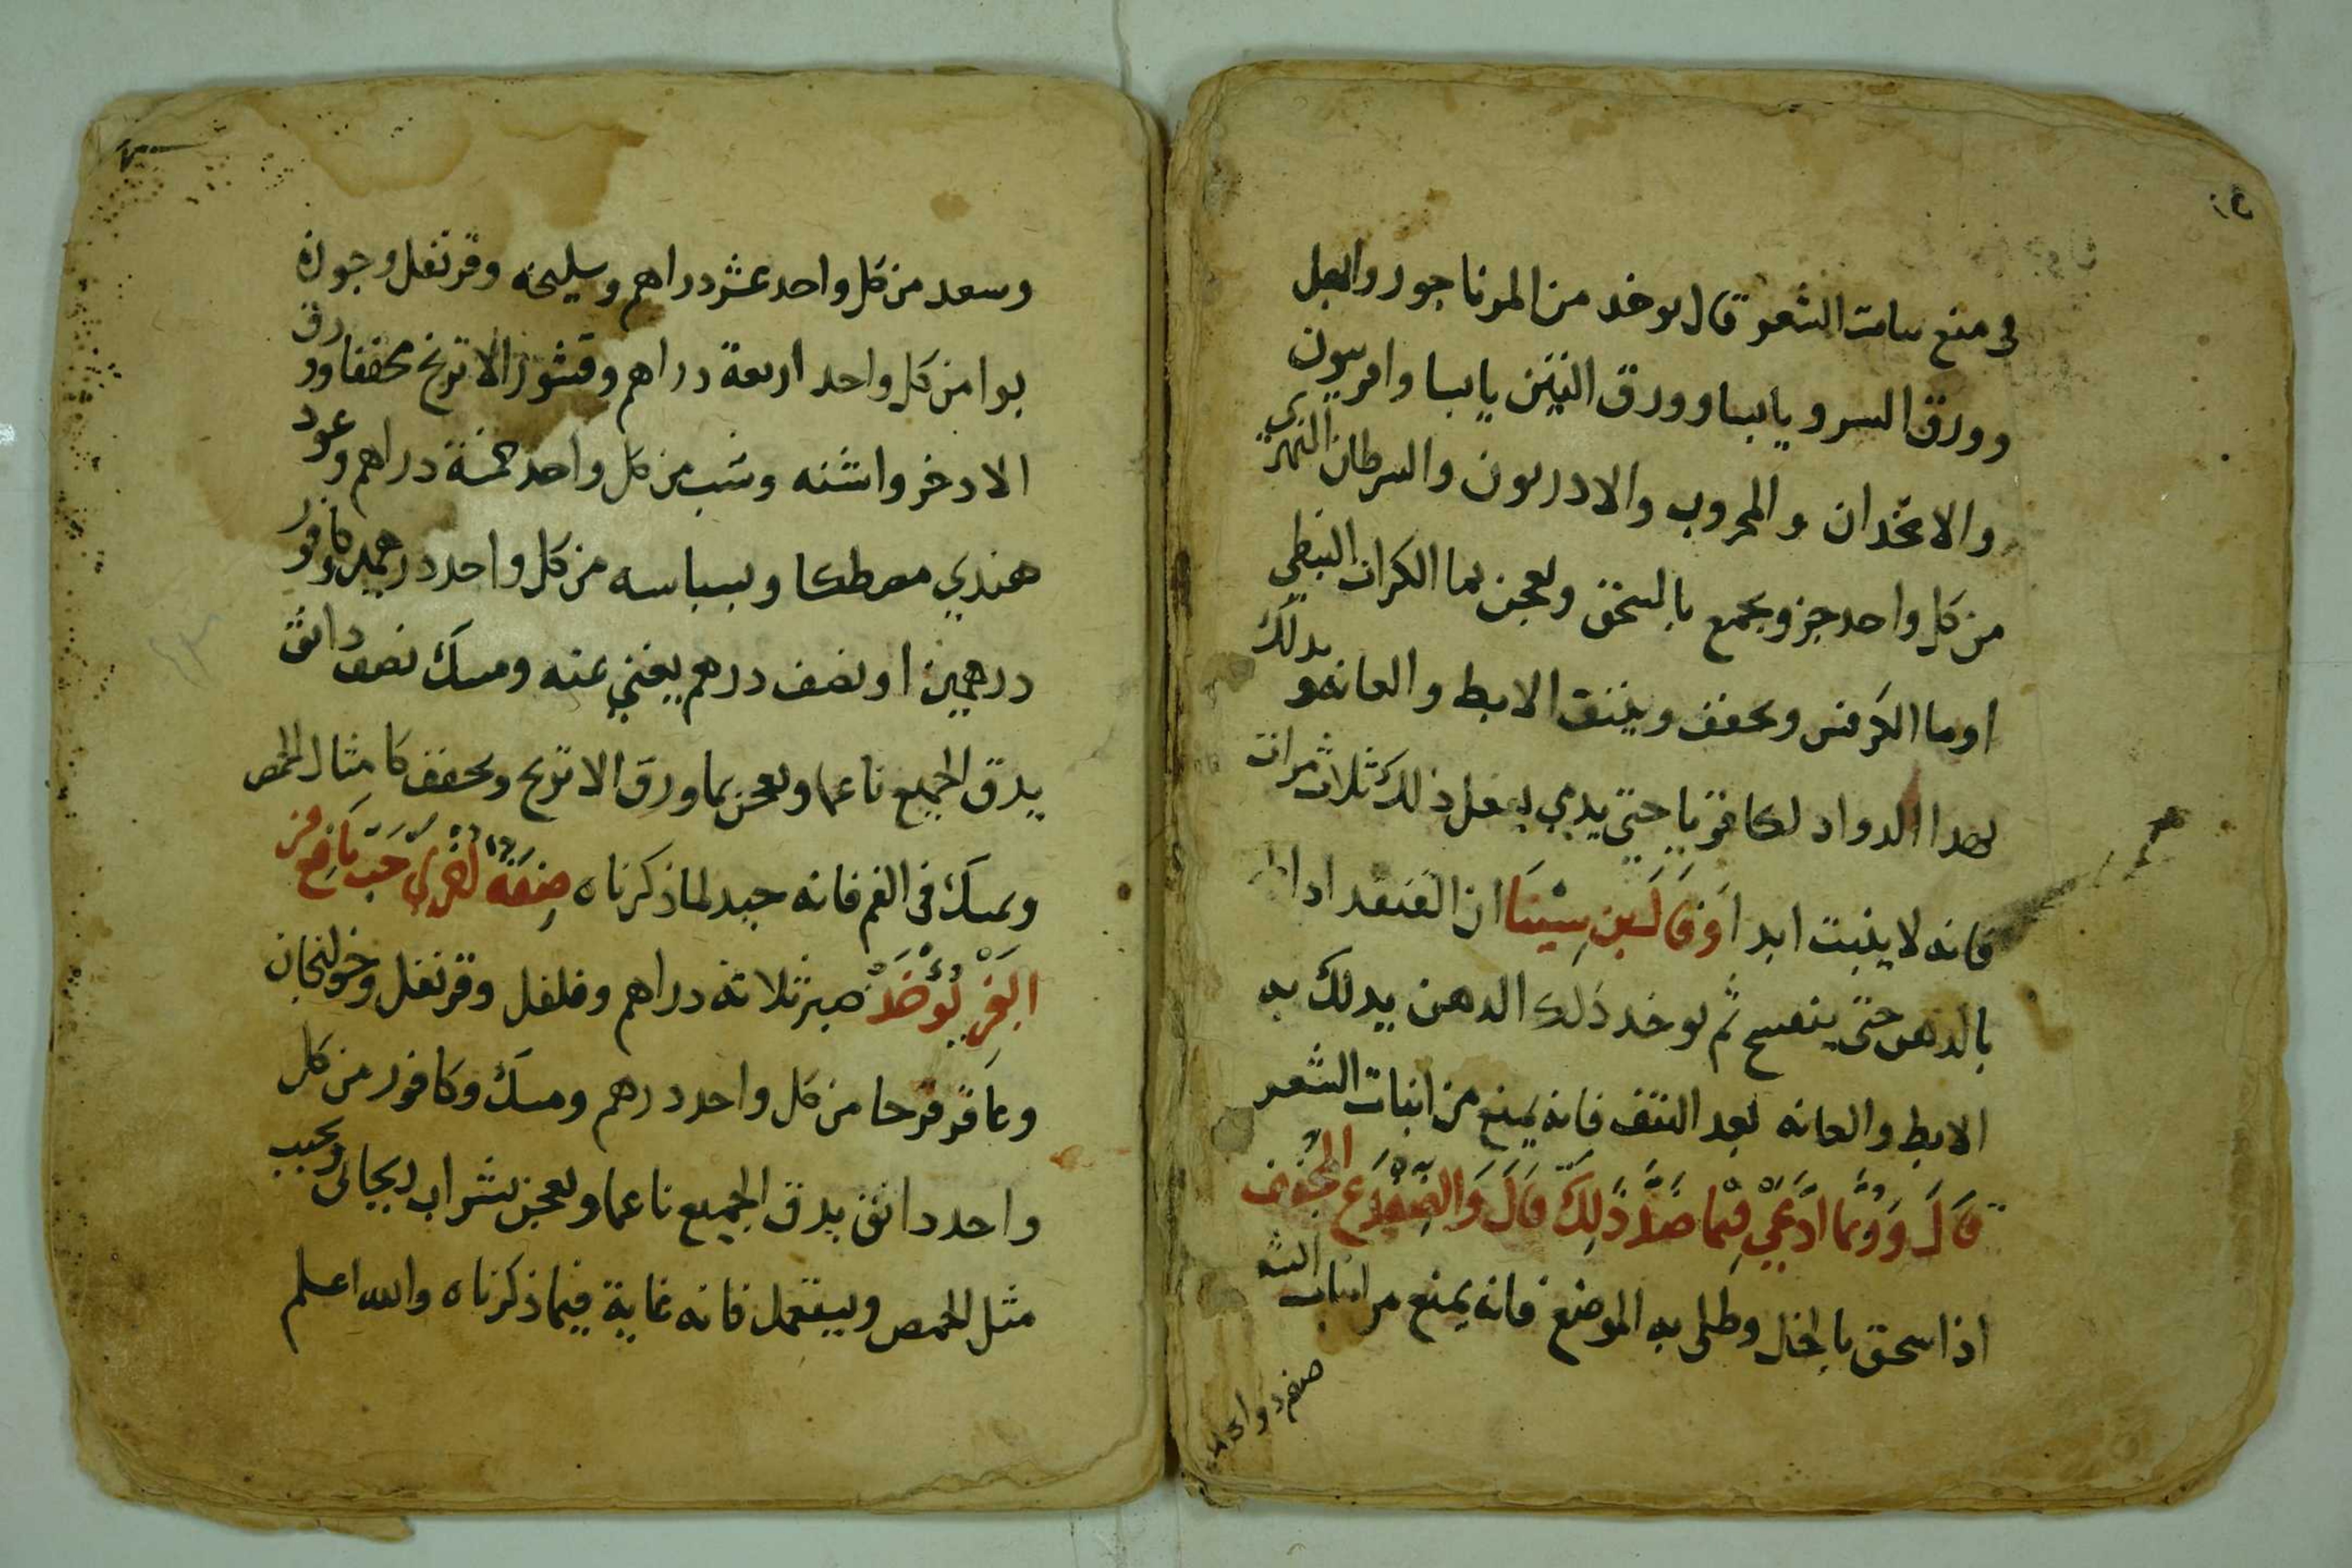 في منع نبات الشعر قال يوخد من المرناجور والبصل
وورق السرو يابسا وورق التين يابسا وافربيون
والانجدان والخروب والادريون والسرطان النهري
من كل واحد جز ويجمع بالسحق ويعجن بما الكراث النبطي
اوما الكرفس ويجفف وينتف الابط والعانه ويدلك
بهدا الدوا دلكا قويا حتى يدمي يفعل ذلك ثلاث مرات
فانه لا ينبت ابدا وقال بن سينا ان القنفد ادا
بالدهن حتى يتفسح ثم يوخد ذلك الدهن يدلك به
الابط والعانه بعد النتف فانه يمنع من انبات الشعر
قال ومما ادعي فيما ضد ذلك قال والضفدع المجفف
اذا سحق بالخل وطلي به الموضع فانه يمنع من انبات الشعر
صفه دوا
وسعد من كل واحد عشر دراهم وسليخه وقرنفل وجوزة
بوا من كل واحد اربعة دراهم وقشور الاترنج مجففا وورق
الادخر واشنه وشب من كل واحد خمسة دراهم وعود
هندي مصطكا وبسباسه من كل واحد درهمين وكافور
درهمين او نصف درهم يغني عنه ومسك نصف دانق
يدق الجميع ناعما ويعجن بما ورق الاترنج ويجفف كامثال الحمص
ويمسك في الفم فانه جيد لما ذكرناه صِفَة اخري حب نافع من
البخر يُؤخذ صبر ثلاثة دراهم وفلفل وقرنفل وخولنجان
وعاقر قرحا من كل واحد درهم ومسك وكافور من كل
واحد دانق يدق الجميع ناعما ويعجن بشراب ريحاني ويحبب
مثل الحمص ويستعمل فانه غاية فيما ذكرناه والله اعلم